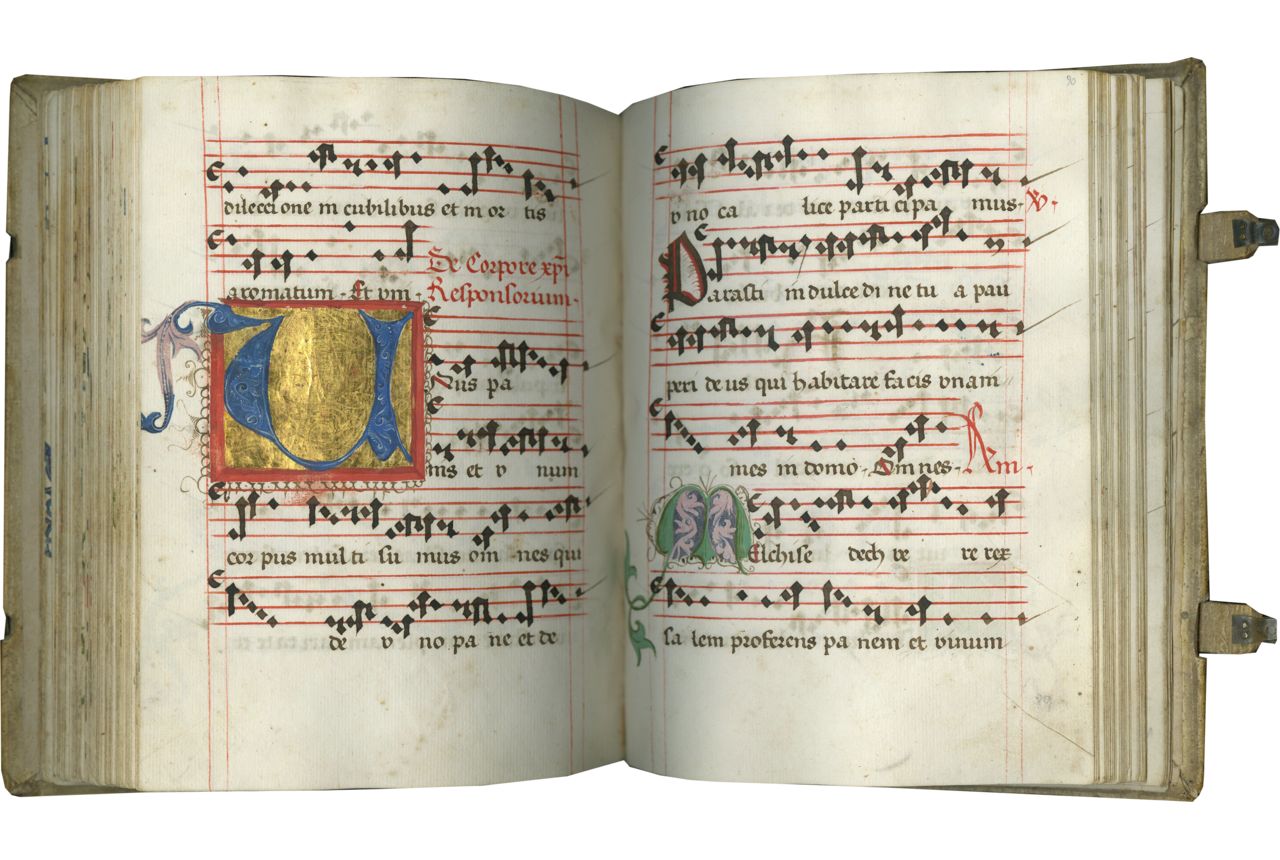 dileccione in cubilibus et mor tis
aromatum · Et vni ·
De Corpore xpi
Responsorium ·
Unus pa
nis et v num
cor pus multi su mus om nes qui
de v no pa ne et de
90
v no ca lice parti cipa mus · V ·
Parasti in dulce di ne tu a pau
peri de us qui habitare facis vnam
mes in domo · Om nes · Am ·
Melchise dech ve re rex
sa lem proferens pa nem et vinum